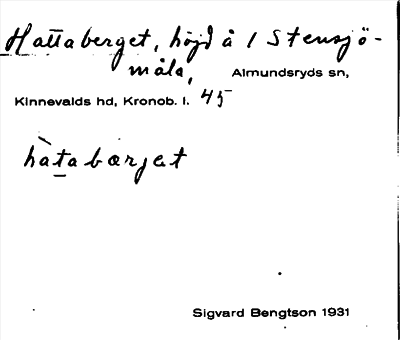 Hattaberget, höjd å 1 Stensjö-
måla, Almundsryds sn,
Kinnevalds hd, Kronob. l. 45
hàtabærjet
Sigvard Bengtson 1931